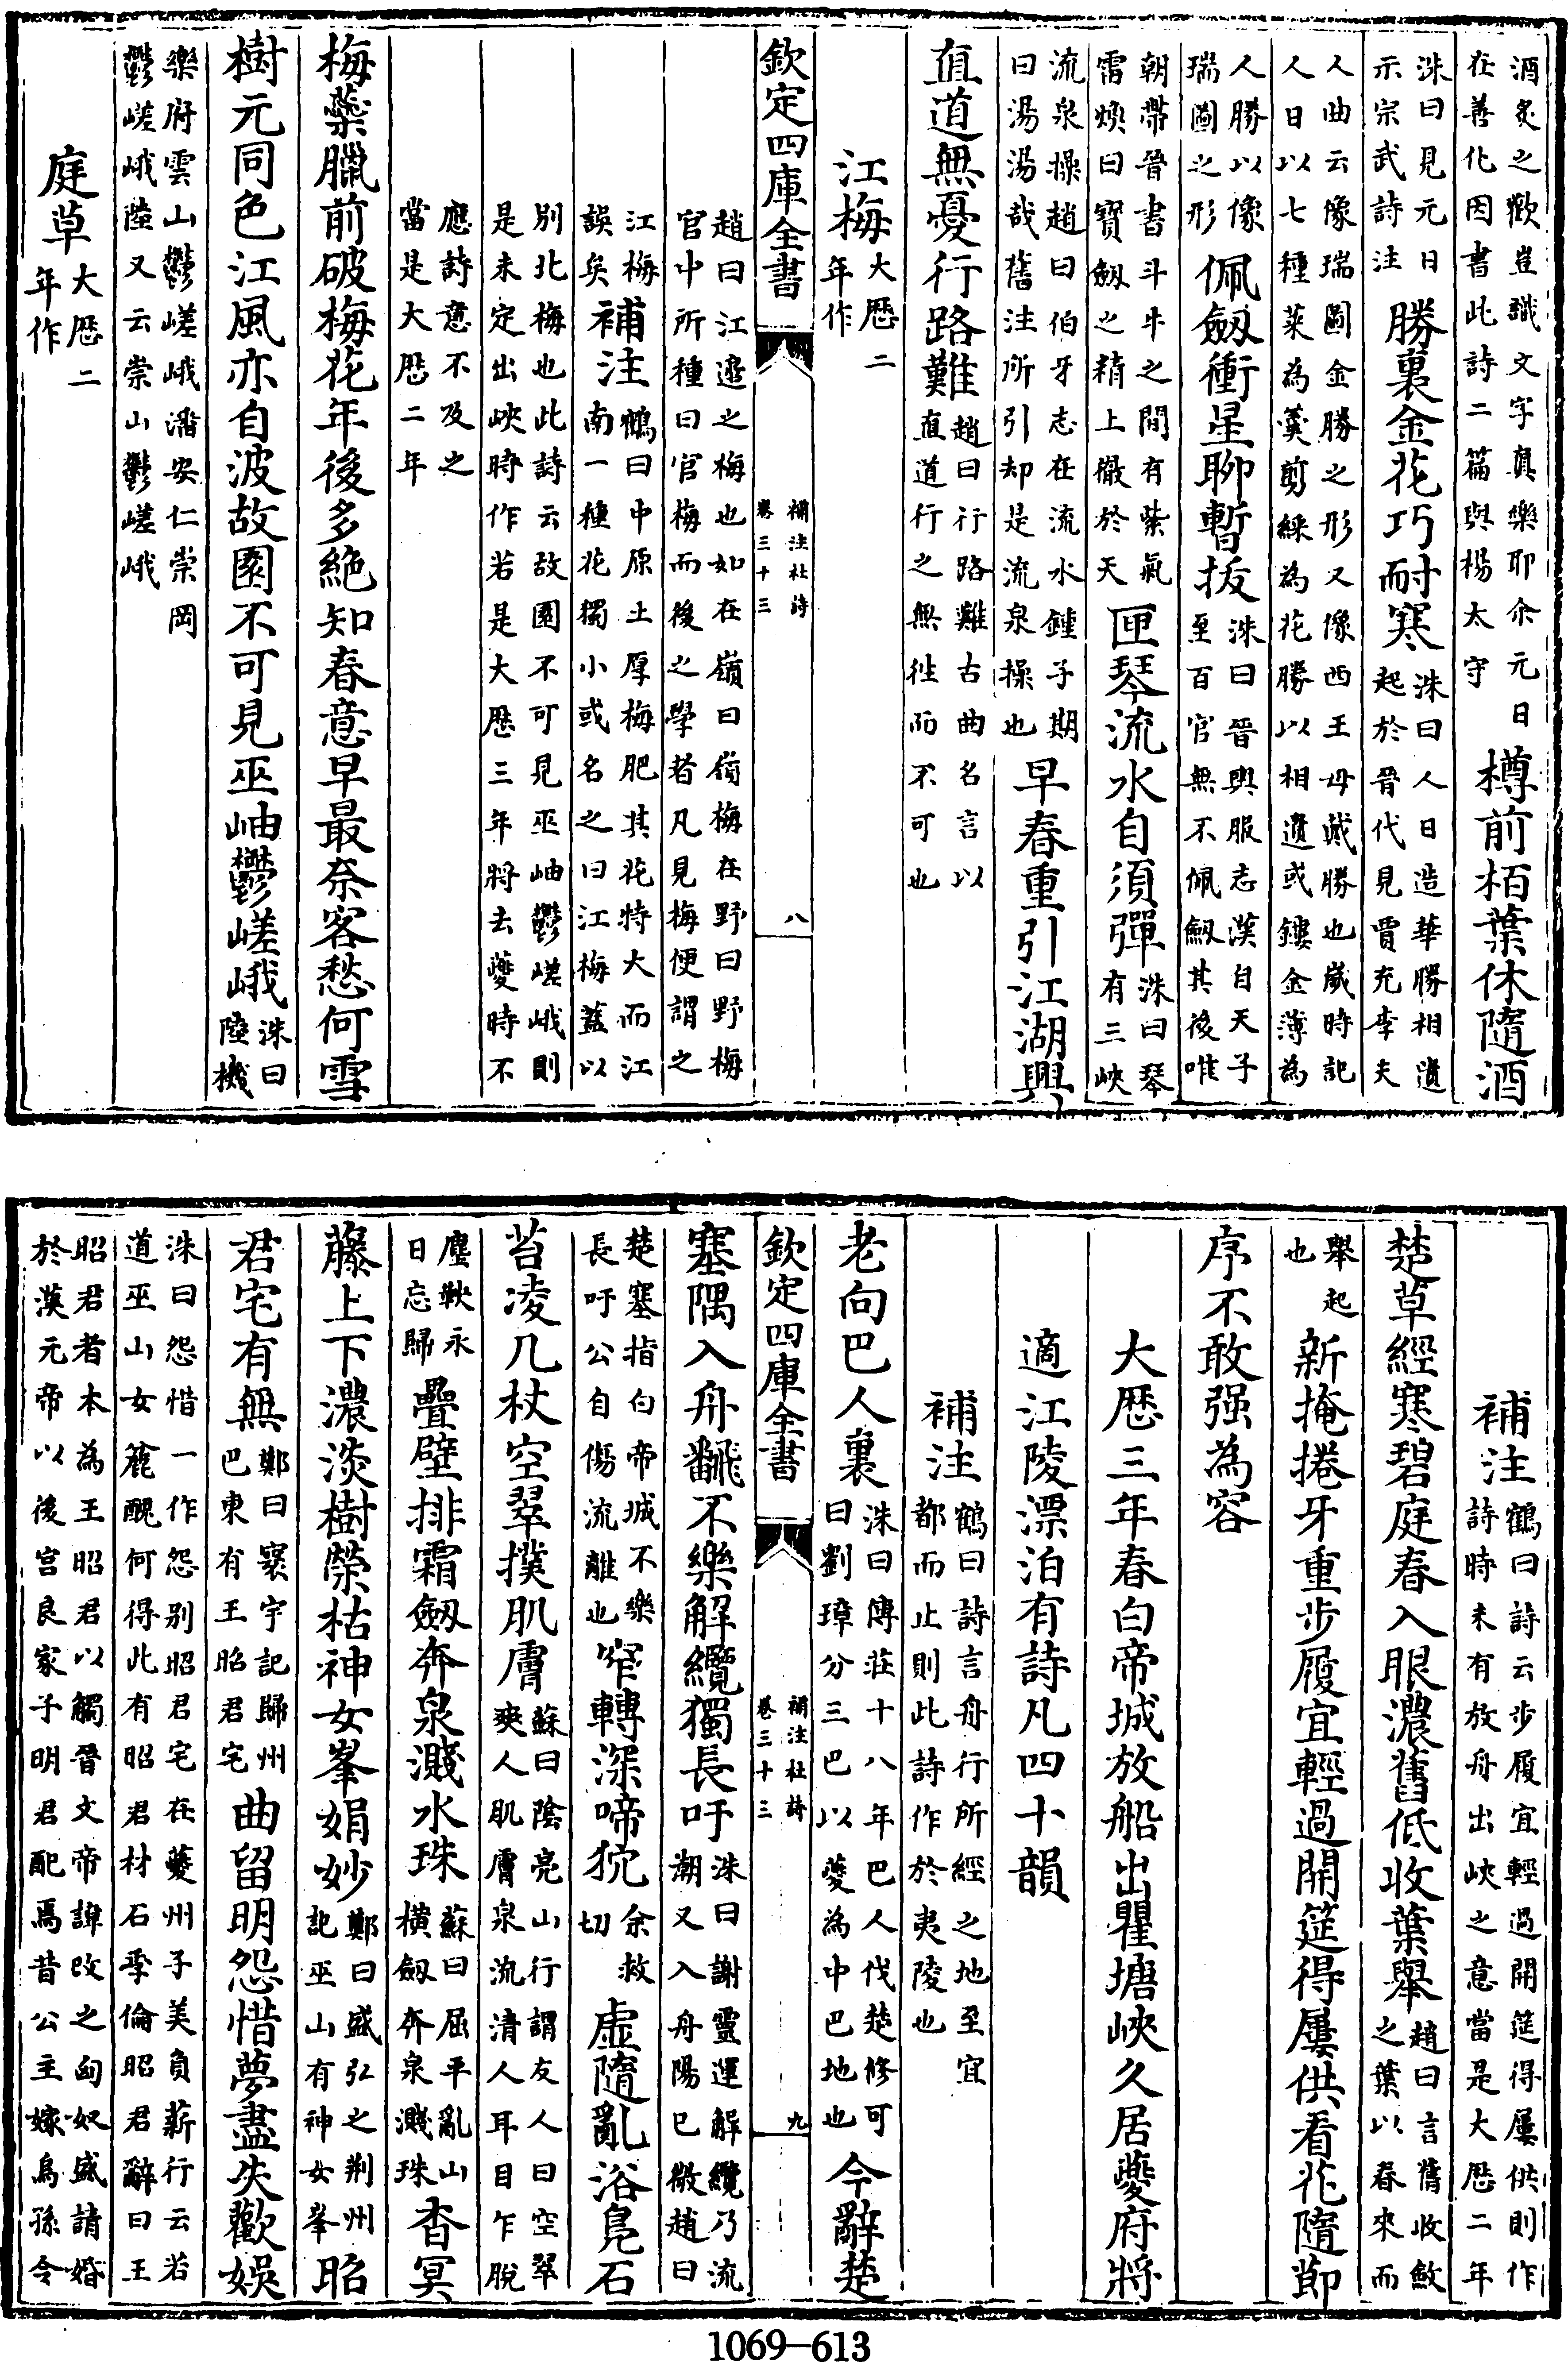 酒炙之歡豈識文字真樂耶余元日
在善化因書此詩二篇與楊太守
樽前栢葉休隨酒
洙曰見元日
示宗武詩注
勝裏金花巧耐寒
洙曰人日造華勝相遺
起於晉代見賈充李夫
人曲云像瑞圖金勝之形又像西王母戴勝也歲時記
人日以七種菜為羹剪綵為花勝以相遺或鏤金薄為
人勝以像
瑞圖之形
佩劔衝星聊暫拔
洙曰晉輿服志漢自天子
至百官無不佩劔其後唯
朝帶晉書斗牛之間有紫氣
雷煥曰寶劔之精上徹於天
匣琴流水自須彈
洙曰琴
有三峽
流泉操趙曰伯牙志在流水鍾子期
曰湯湯哉舊注所引却是流泉操也
早春重引江湖興
直道無憂行路難
趙曰行路難古曲名言以
直道行之無往而不可也
江梅
大厯二
年作
欽定四庫全書
補注杜詩
卷三十三
八
趙曰江邉之梅也如在嶺曰嶺梅在野曰野梅
官中所種曰官梅而後之學者凡見梅便謂之
江梅
誤矣
補注
鶴曰中原土厚梅肥其花特大而江
南一種花獨小或名之曰江梅蓋以
別北梅也此詩云故園不可見巫岫鬱嵯峨則
是未定出峽時作若是大厯三年將去夔時不
應詩意不及之
當是大厯二年
梅蘂臘前破梅花年後多絶知春意早最奈客愁何雪
樹元同色江風亦自波故園不可見巫岫鬱嵯峨
洙曰
陸機
樂府雲山鬱嵯峨潘安仁崇岡
鬱嵯峨陸又云崇山鬱嵯峨
庭草
大厯二
年作
補注
鶴曰詩云步履宜輕過開筵得屢供則作
詩時未有放舟出峽之意當是大厯二年
楚草經寒碧庭春入眼濃舊低收葉舉
趙曰言舊收斂
之葉以春來而
舉起
也
新掩捲牙重步履宜輕過開筵得屢供看花隨節
序不敢强為容
大厯三年春白帝城放船出瞿塘峽久居夔府將
適江陵漂泊有詩凡四十韻
補注
鶴曰詩言舟行所經之地至宜
都而止則此詩作於夷陵也
老向巴人裏
洙曰傳莊十八年巴人伐楚修可
曰劉璋分三巴以夔為中巴地也
今辭楚
欽定四庫全書
補注杜詩
卷三十三
九
塞隅入舟飜不樂解纜獨長吁
洙曰謝靈運解纜乃流
潮又入舟陽已微趙曰
楚塞指白帝城不樂
長吁公自傷流離也
窄轉深啼狖
余救
切
虛隨亂浴鳬石
苔凌几杖空翠撲肌膚
蘇曰陰亮山行謂友人曰空翠
爽人肌膚泉流清人耳目乍脫
塵鞅永
日忘歸
疊壁排霜劔奔泉濺水珠
蘇曰屈平亂山
橫劔奔泉濺珠
杳冥
藤上下濃淡樹榮枯神女峯娟妙
鄭曰盛弘之荆州
記巫山有神女峯
昭
君宅有無
鄭曰寰宇記歸州
巴東有王昭君宅
曲留明怨惜夢盡失歡娛
洙曰怨惜一作怨别昭君宅在夔州子美負薪行云若
道巫山女麄醜何得此有昭君材石季倫昭君辭曰王
昭君者本為王昭君以觸晉文帝諱改之匈奴盛請婚
於漢元帝以後宫良家子明君配焉昔公主嫁烏孫令
1069-613